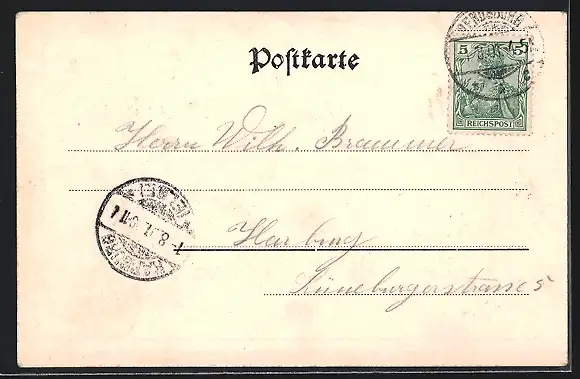 Postkarte
5 5
REICHSPOST
Herrn Wilh. Brammer
Harburg
Lüneburgerstrasse 5